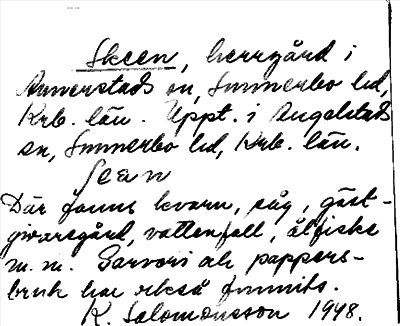 Skeen, herrgård i
Annerstads sn, Sunnerbo hd,
Krb. län. Uppt. i Angelstads
sn, Sunnerbo hd, Krb. län.
Sean
Där fanns kvarn, såg, gäst-
givaregård, vattenfall, ålfiske
m. m. Garveri och pappers-
bruk har också funnits.
K. Salomonsson 1948.